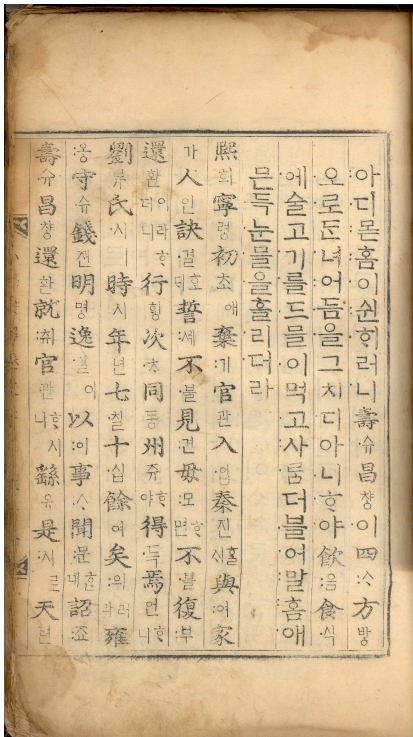 아디몯홈이쉰ᄒᆡ러니壽슈昌챵이四ᄉᆞ方방
오로ᄃᆞᆫ녀어듬을그치디아니ᄒᆞ야飮음食식
에술고기를드믈이먹고사ᄅᆞᆷ더블어말홈애
믄득눈믈을흘리더라
熙희寧령初초애棄기官관入입秦진ᄒᆞᆯᄉᆡ與여家
가人인訣결호ᄃᆡ誓셰不블見견母모ᄒᆞ면不블復부
還환이라ᄒᆞ더니行ᄒᆡᆼ次ᄎᆞ同동州쥬ᄒᆞ야得득焉언ᄒᆞ니
劉류氏시時시年년七칠十십餘여矣의러라雍
옹守슈錢젼明명逸일이以이事ᄉᆞ聞문ᄒᆞᆫ대詔죠
壽슈昌챵還환就취官관ᄒᆞ시니繇유是시로天텬